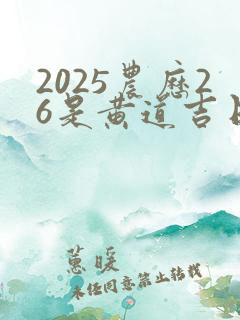 2025農歷2
6是黄道吉日
蕙暖
未经同意禁止转载